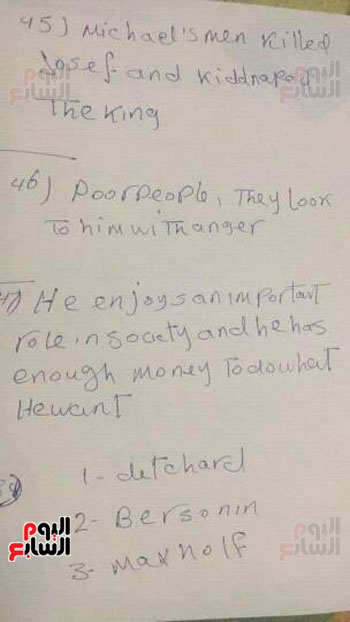 45) Michael's men killed
Josef and Kiddnaped
The King
46) Poor people, They look
To him with anger
He enjoys an important
role in society and he has
enough money To do what
He want
1- detchard
2- Bersonin
3- Max holf
اليوم السابع
اليوم السابع
اليوم السابع
اليوم السابع